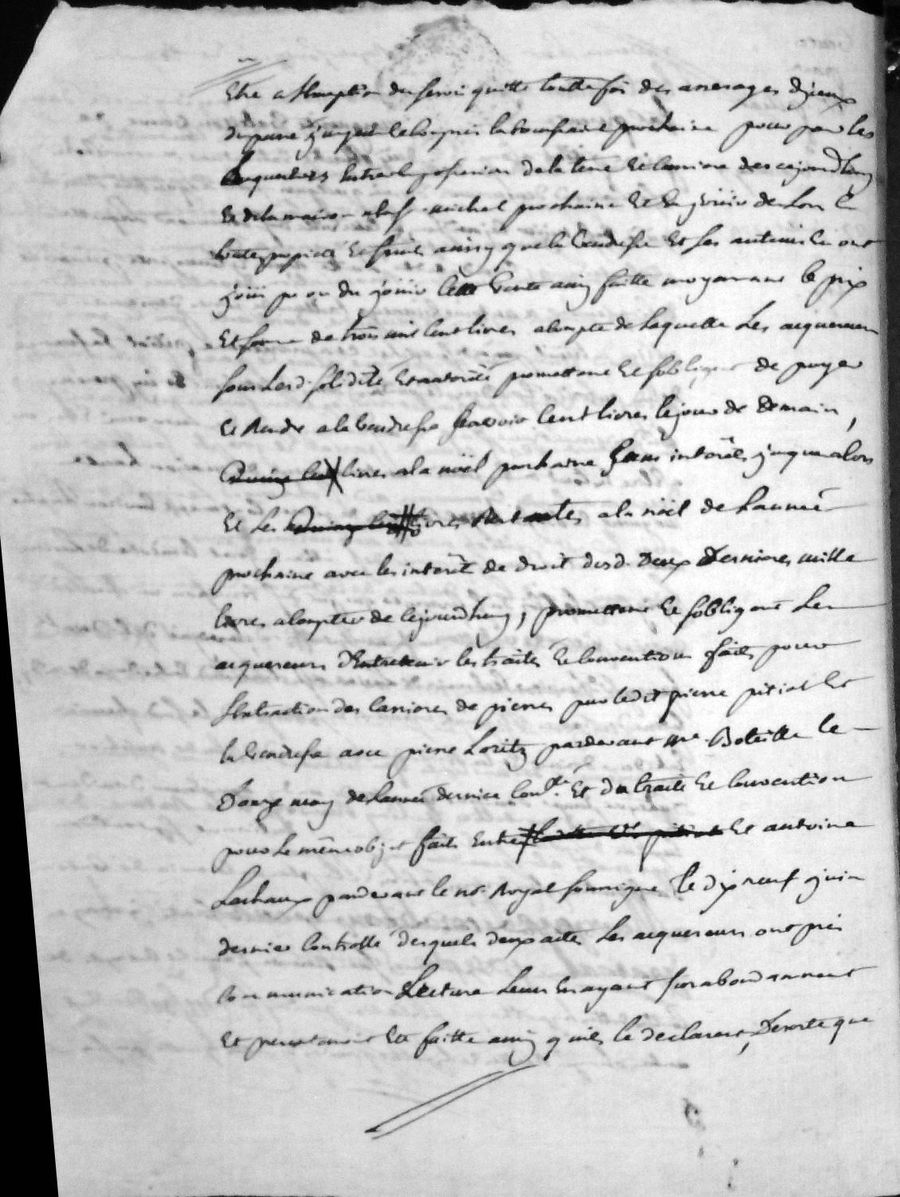 Etre a lexception du servi quitte toutte fois des arrerages dyceux
du passé jusques a la prochaine pour par les
acquereurs entrer en possession de la terre et carriere des cejourdhuy
et de la maison a la st michel prochaine et en jouir de
toutte propriété et fruits ainsy que la venderesse et ses auteurs en ont
joüi pu ou du jouir cette vente ainsy faitte moyennant le prix
et somme de trois mil cent livres a compte de laquelle les acquereurs
sous lad. solidité promettent et sobligent de payer
et rendre a la venderesse scavoir cent livres le jour de demain,
livres a la noël prochaine sans interêts jusqua lors
et les livres restantes a la noël de lannée
prochaine avec les interêt de droit desd. deux dernieres mille
livres a compter de cejourdhuy, promettent et sobligent les
acquereurs dentretenir les traités et conventions faits pour
lextraction des carrieres de pierres par ledit pierre pitiot et
la venderesse avec pierre Loritz pardevant me Boteille le
douze may de lannée derniere conllé et du traité et convention
pour le même objet faits entre et antoine
Lachaux pardevant le no. Royal soussigné le dix neuf juin
dernier controllé desquels deux actes les acquereurs ont pris
communication lecture leur en ayant surabondamment
et presentement été faitte ainsy quils le declarent, desorte que